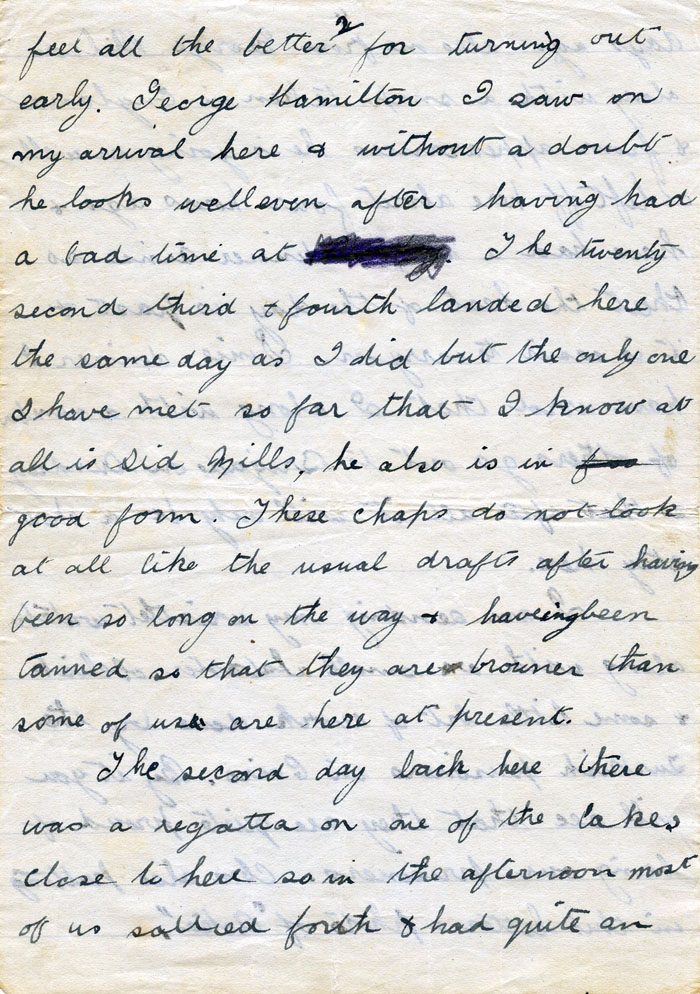 2
feel all the better for turning out
early. George Hamilton I saw on
my arrival here & without a doubt
he looks well even after having had
a bad time at . The twenty
second third & fourth landed here
the same day as I did but the only one
I have met so far that I know at
all is Sid Mills, he also is in
good form. These chaps do not look
at all like the usual drafts after having
been so long on the way & haveing been
tanned so that they are browner than
some of us are here at present.
The second day back here there
was a regatta on one of the lakes
close to here so in the afternoon most
of us sallied forth & had quite an